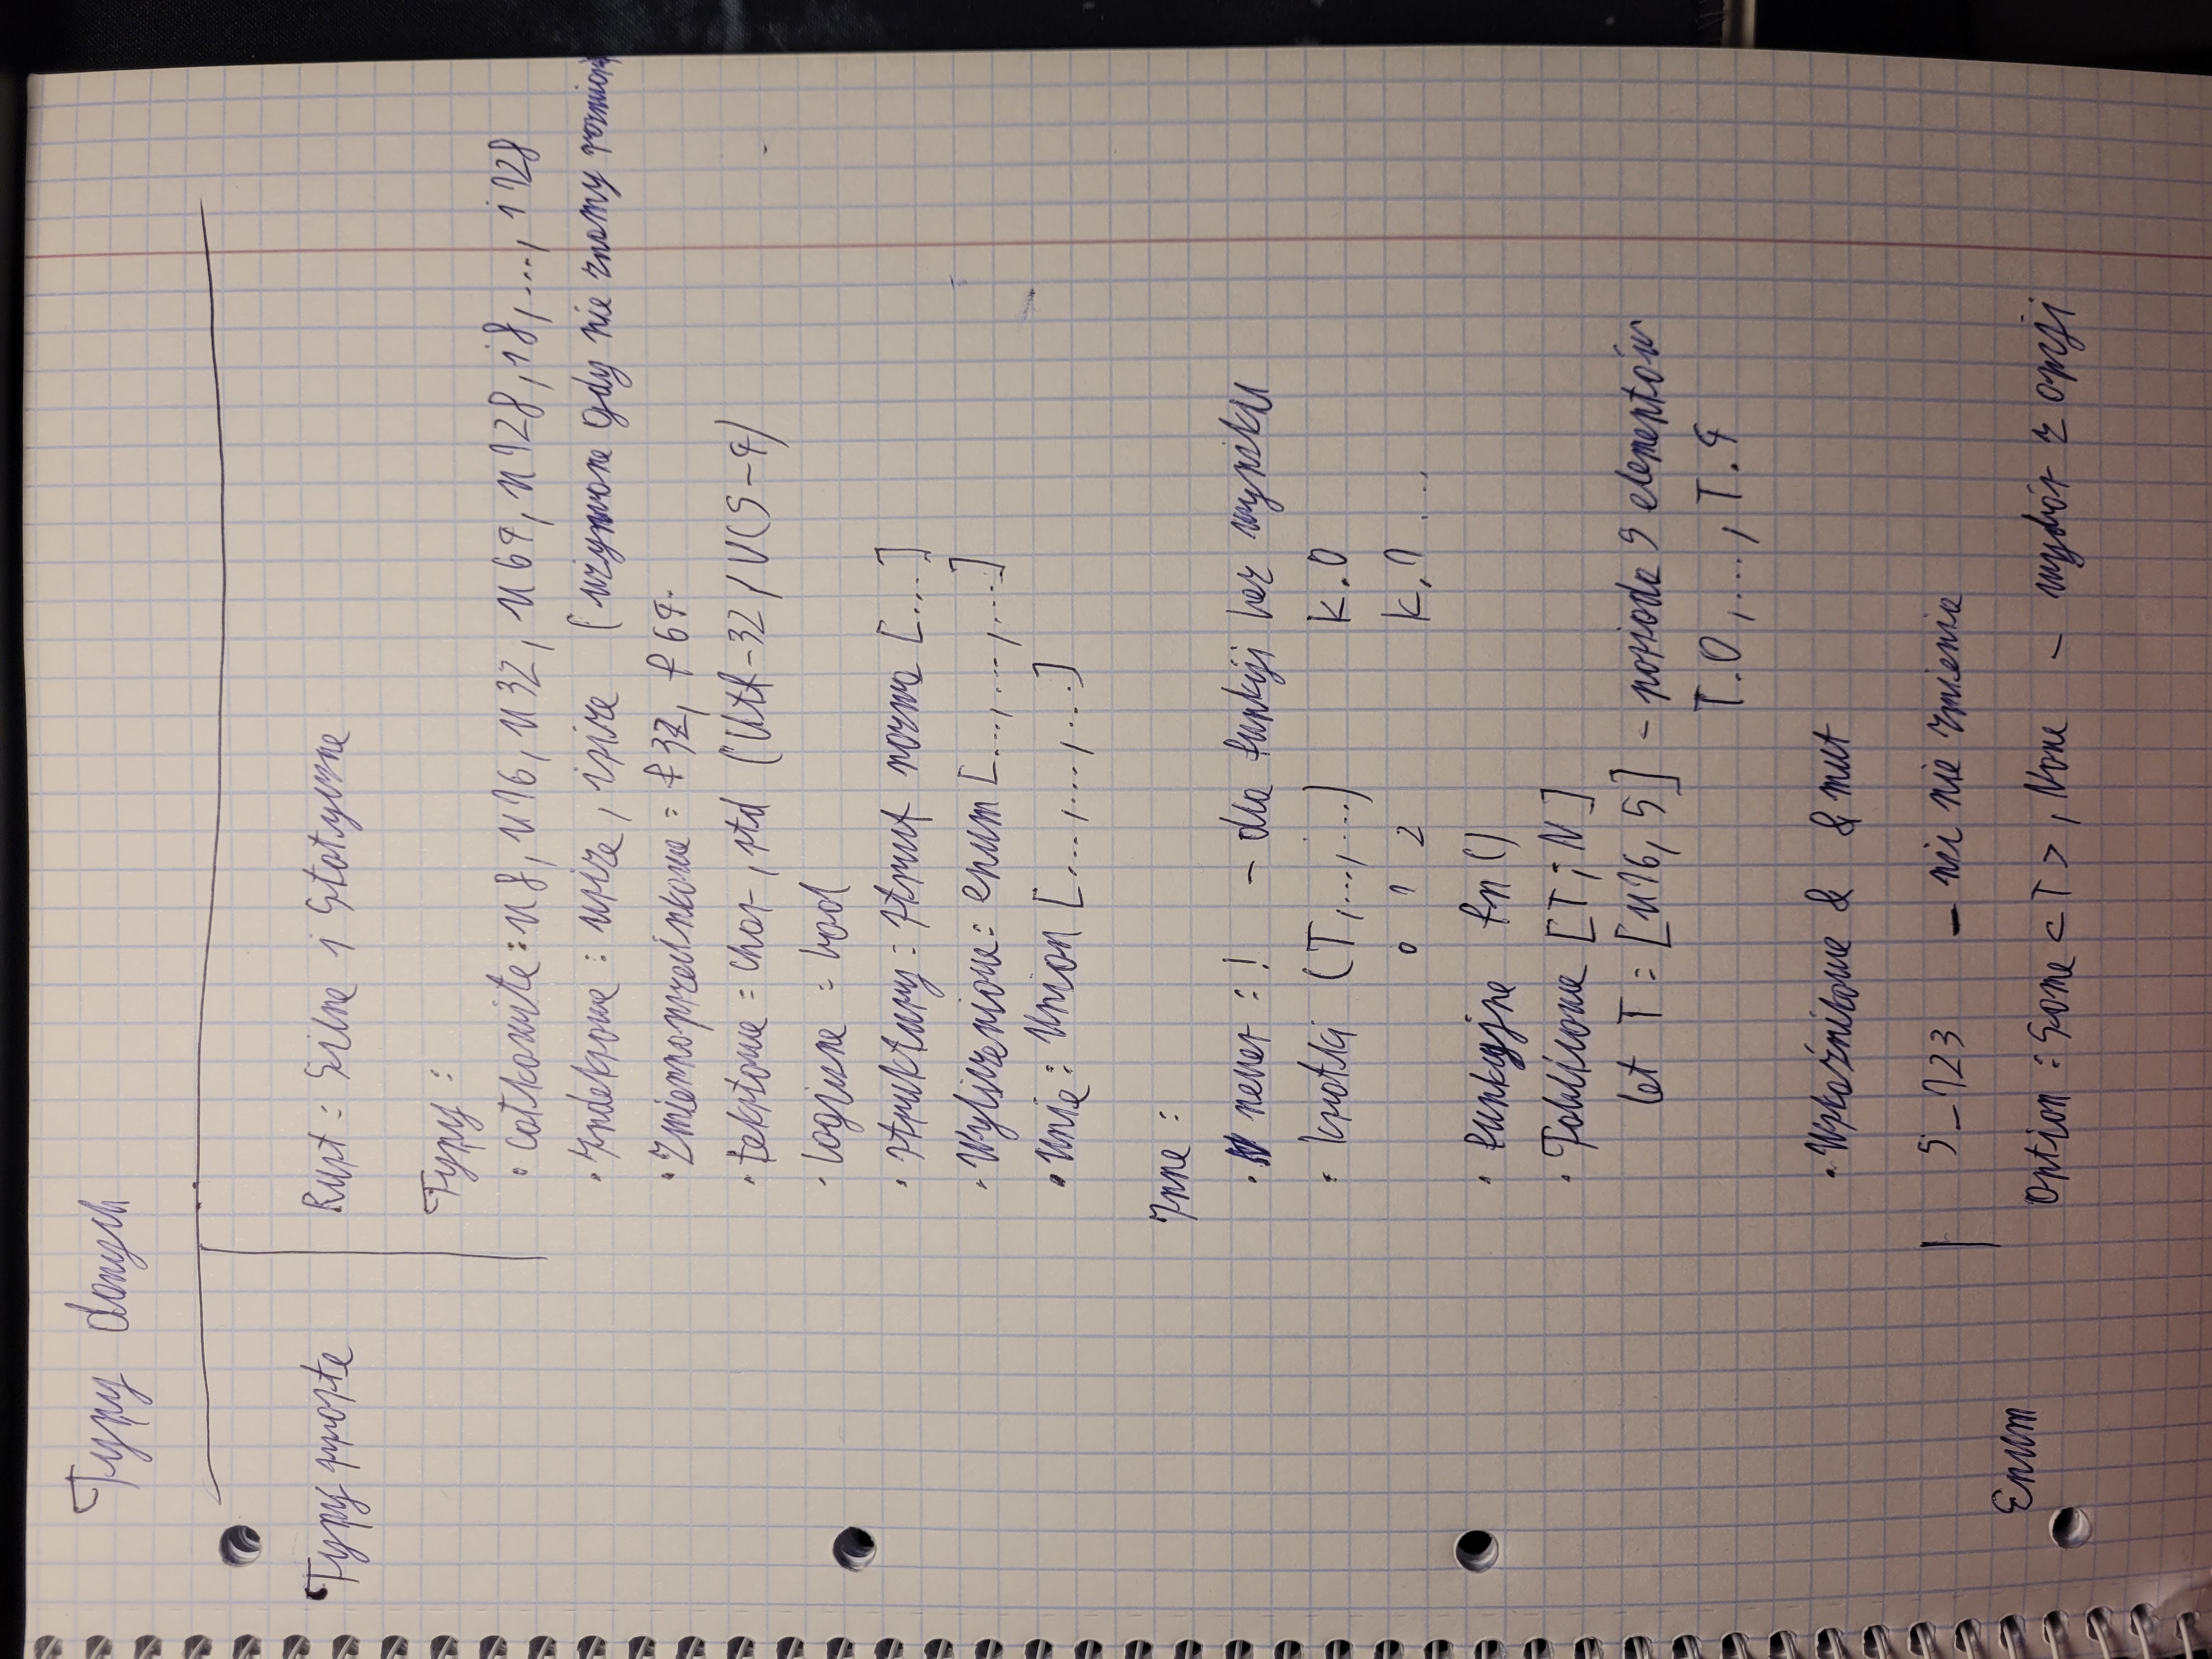 Typy danych
Typy proste
Rust: Silne i Statyczne
Typy:
• całkowite: u8, u16, u32, u64, u128, i8, ..., i128
• Indeksowe: usize, isize (używane gdy nie znamy rozmiaru
• Zmiennoprzecinkowe: f32, f64
• tekstowe: char, std (Utf-32/UCS-4)
• logiczne: bool
• struktury: struct nazwa [...]
• Wyliczeniowe: enum [..., ..., ...]
• Unie: Union [..., ..., ...]
Inne:
• never: ! - dla funkcji bez wyniku
• krotki (T, ..., ...) K.0
0 1 2 K.1 ...
• funkcyjne fn()
• Tablicowe [T; N]
let T = [u16, 5] - posiada 5 elementów
T.0, ..., T.4
• Wskaźnikowe & &mut
5_123 - nic nie zmienia
Enum
Option: Some<T>, None - wybór z opcji